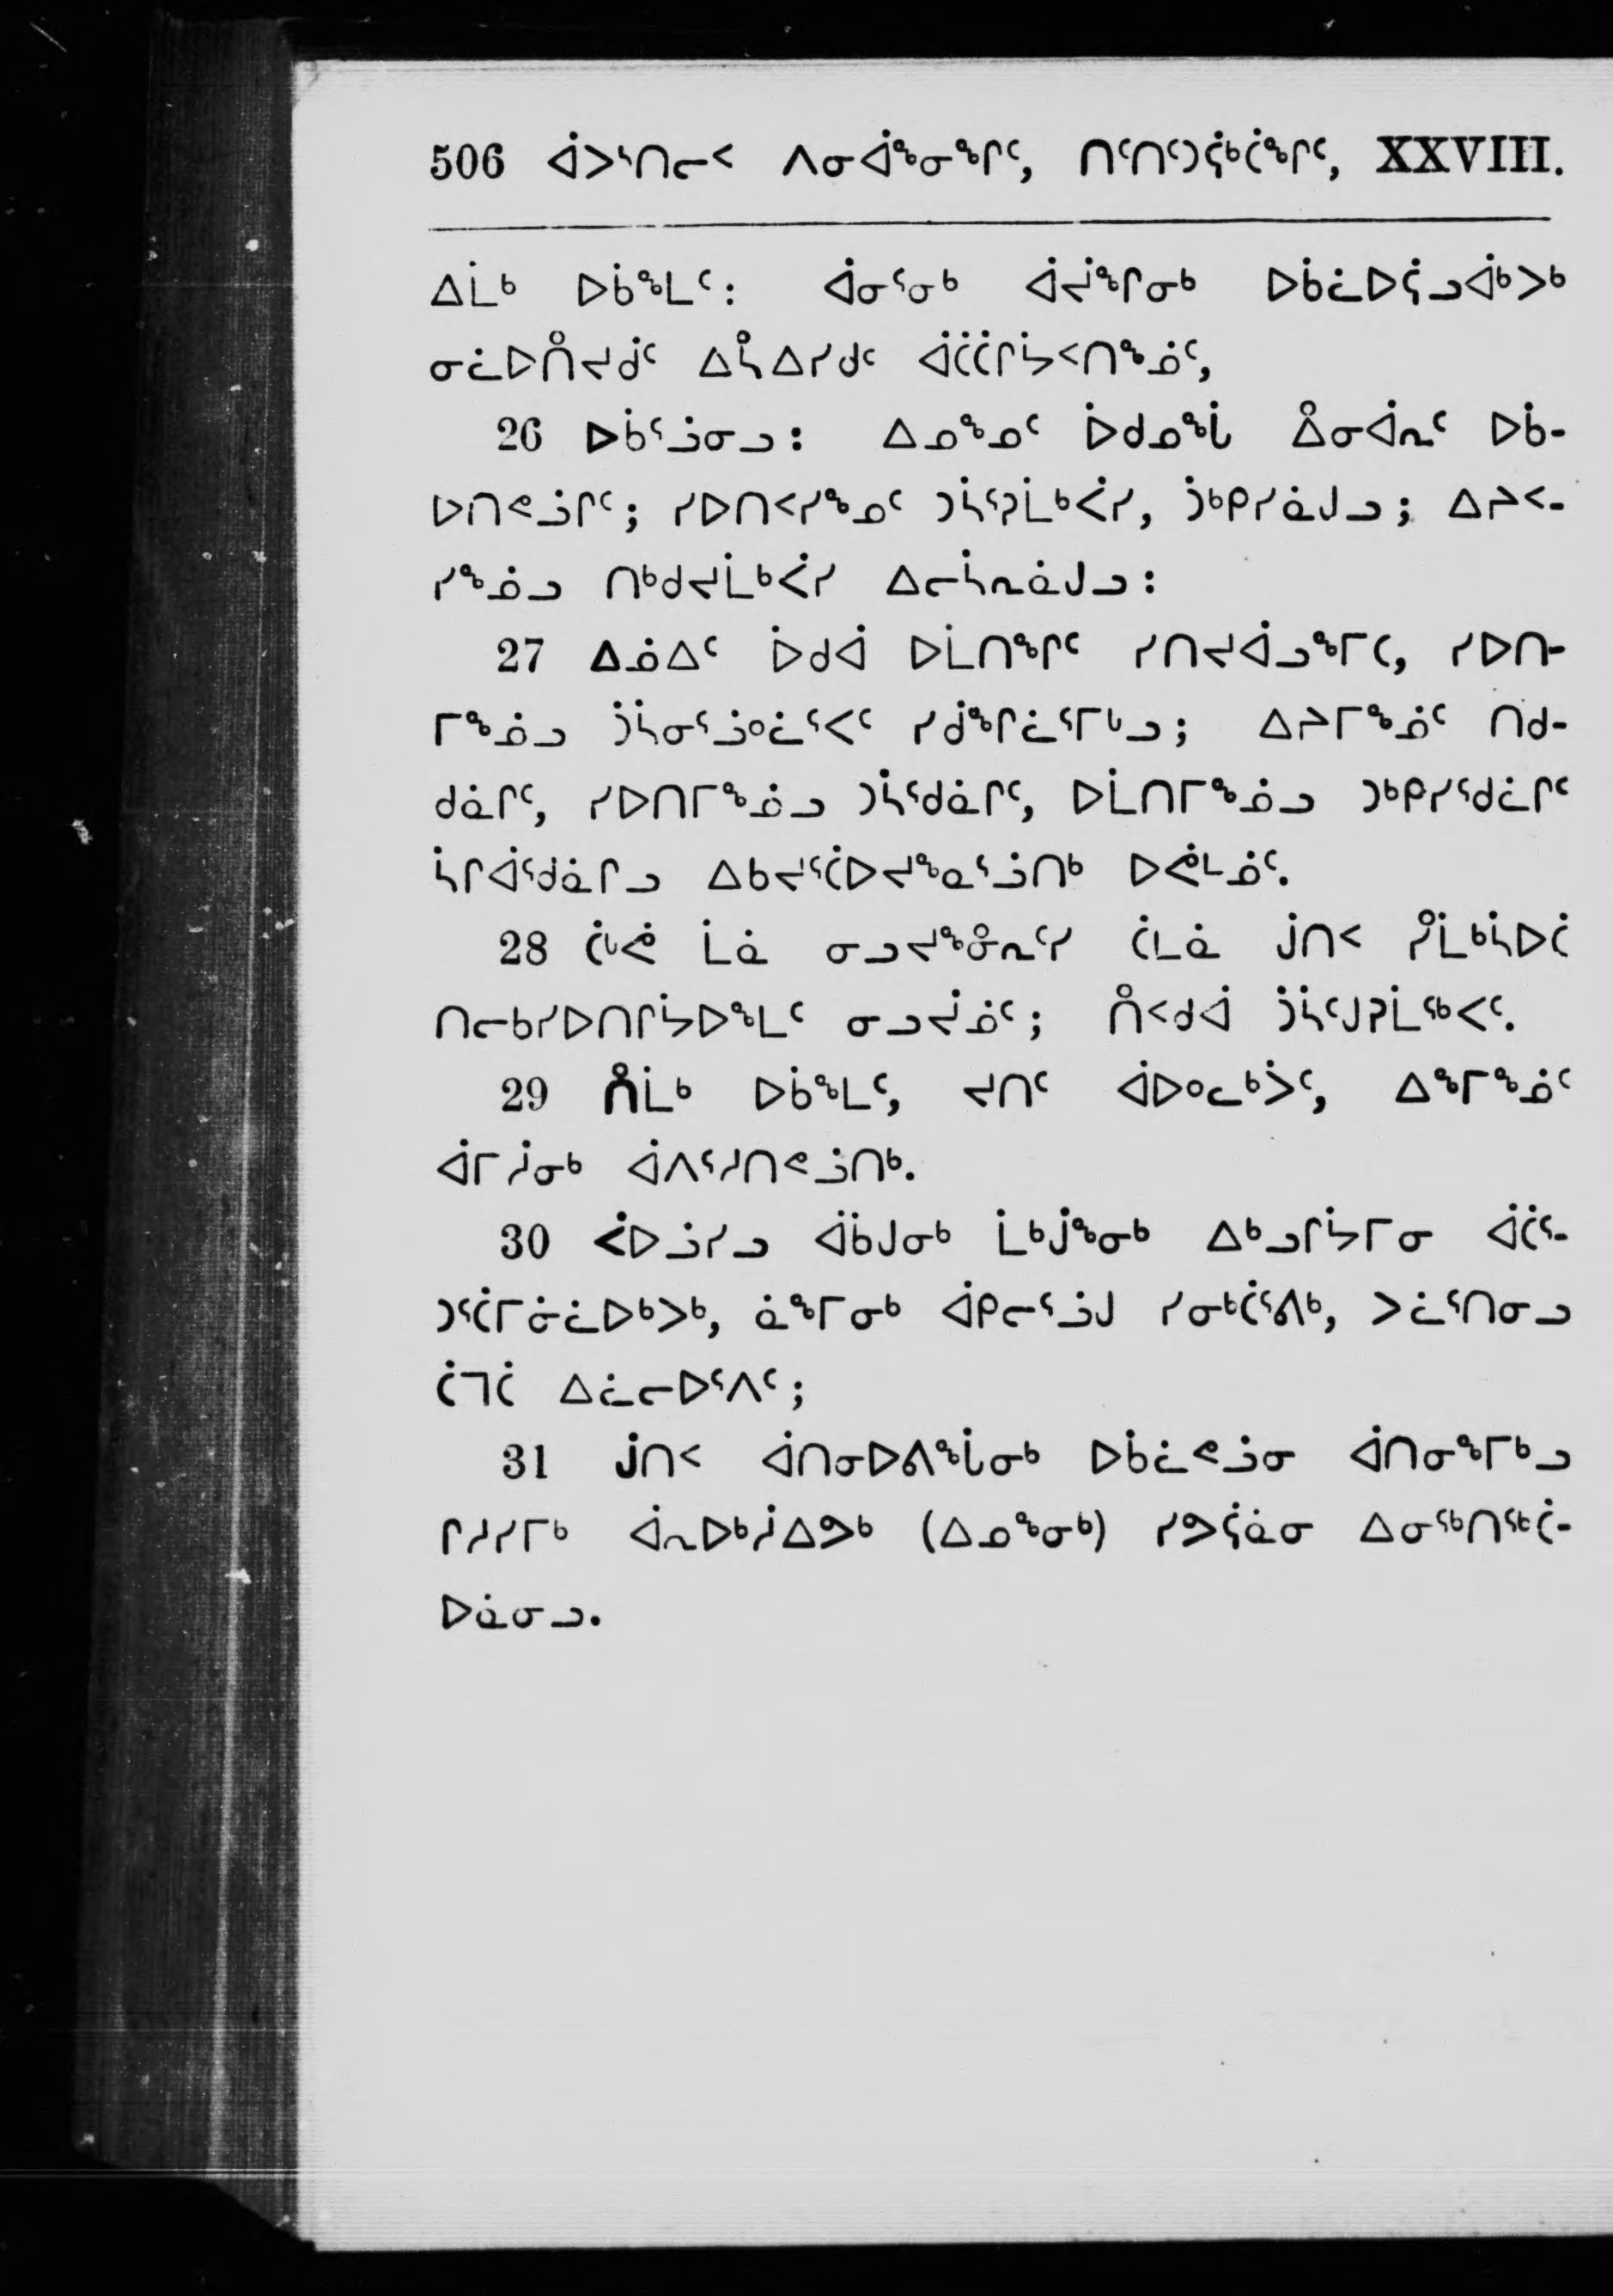 506 ᐋᐳᔅᑎᓕᑉ ᐱᓂᐋᖕᓂᖏᑦ, ᑎᑦᑎᑦᑐᕌᒃᑖᖏᑦ, XXVIII.
ᐃᒫᒃ ᐅᑳᖕᒪᑦ: ᐋᓂᕐᓂᒃ ᐋᔪᖏᓂᒃ ᐅᑳᓛᐅᕌᓗᐋᒃᐳᒃ
ᓂᓛᐅᑏᔪᑰᑦ ᐃᓵᐃᓯᑯᑦ ᐋᑖᑖᒋᔭᑉᑎᖕᓅᑦ,
26 ᐅᑳᕐᓘᓂᓗ: ᐃᓄᖕᓄᑦ ᐆᑯᓄᖓ ᐄᓂᐋᕆᑦ ᐅᑳ-
ᐅᑎᕙᓘᒋᑦ; ᓯᐅᑎᑉᓯᖕᓄᑦ ᑐᓵᕐᓂᒫᒃᐹᓯ, ᑑᒃᑭᓯᓈᒍᓗ; ᐃᔨᑉ-
ᓯᖕᓅᓗ ᑎᑯᔪᒫᒃᐹᓯ ᐃᓕᓴᕆᓈᒍᓗ:
27 ᐃᓅᐃᑦ ᐆᑯᐊ ᐅᒫᑎᖏᑦ ᓯᑎᔪᐋᓗᖕᒥᑕ, ᓯᐅᑎ-
ᒥᖕᓅᓗ ᑑᓵᓂᕐᓘᓐᓛᕐᐸᑦ ᓯᑰᖏᓛᕐᒥᒐᓗ; ᐃᔨᒥᖕᓅᑦ ᑎᑯ-
ᑯᓈᒋᑦ, ᓯᐅᑎᒥᖕᓅᓗ ᑐᓵᕐᑯᓈᒋᑦ, ᐅᒫᑎᒥᖕᓅᓗ ᑐᒃᑭᓯᕐᑯᓛᒋᑦ
ᓵᒋᐋᕐᑯᓈᒋᓗ ᐃᑲᔪᕐᑖᐅᔪᖕᓇᕐᓘᑎᒃ ᐅᕚᒻᓅᑦ.
28 ᑖᒡᕚ ᒫᓈ ᓂᓗᔪᖕᓃᕆᑦᓯ ᑖᒪᓈ ᒎᑎᑉ ᓰᒫᒃᓴᐅᑖ
ᑎᓕᑲᓯᐅᑎᒋᔭᐅᖕᒪᑦ ᓂᓗᔫᓅᑦ; ᑏᑉᑯᐊ ᑑᓵᑦᒍᒫᖅᐸᑦ.
29 ᑏᒫᒃ ᐅᑳᖕᒪᑦ, ᔪᑎᑦ ᐋᐅᓪᓚᒃᐴᑦ, ᐃᖕᒥᖕᓅᑦ
ᐋᒥᓲᓂᒃ ᐋᐱᕐᓱᑎᕙᓘᑎᒃ.
30 ᐹᐅᓘᓯᓗ ᐋᑳᒍᓂᒃ ᒫᒃᒎᖕᓂᒃ ᐃᒃᓗᒋᔭᒥᓂ ᐋᑖᕐ-
ᑐᕐᑖᒥᓃᓛᐅᒃᐳᒃ, ᓈᖕᒥᓂᒃ ᐋᑭᓕᕐᓘᒍ ᓯᓂᒃᑖᕐᕕᒃ, ᐳᓛᕐᑎᓂᓗ
ᑖᒣᑖ ᐃᓛᓕᐅᕐᐱᑦ;
31 ᒎᑎᑉ ᐋᑎᓂᐅᕕᖓᓂᒃ ᐅᑳᓛᕙᓘᓂ ᐋᑎᓂᖕᒥᒃᓗ
ᒋᓱᓯᒥᒃ ᐋᕆᐅᒃᓲᐃᕗᒃ (ᐃᓄᖕᓂᒃ) ᓯᕗᕌᓈᓂ ᐃᓂᖅᑎᖅᑖ-
ᐅᓈᓂᓗ.